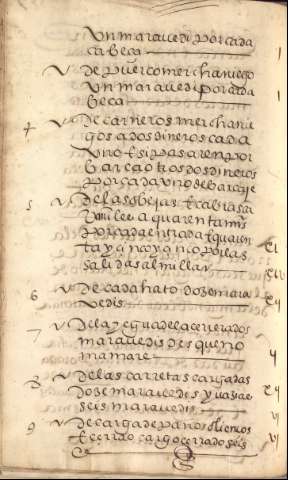 Un maravedi por cada
cabeça
V De puerco merchaniego
Un maravedi por cada
beca
4 V De carneros merchanie
gos a dos dineros cada
Uno E si pasaren por
barca otros dos dineros
por cada uno de barcaje
5 V De las obejas E cabras a
mill a quarenta mrs
por cada entrada E quaren
ta y cinco por las
salidas al millar
6 V De cada hato doze mara
Vedis
7 V De la yegua de la cerca dos
maravedis es que no
mamare
8 V De las carretas cargadas
doze maravedis y vazias
seis maravedis
9 V De carga de paños lienços
E cerrado cargo cerrado seis